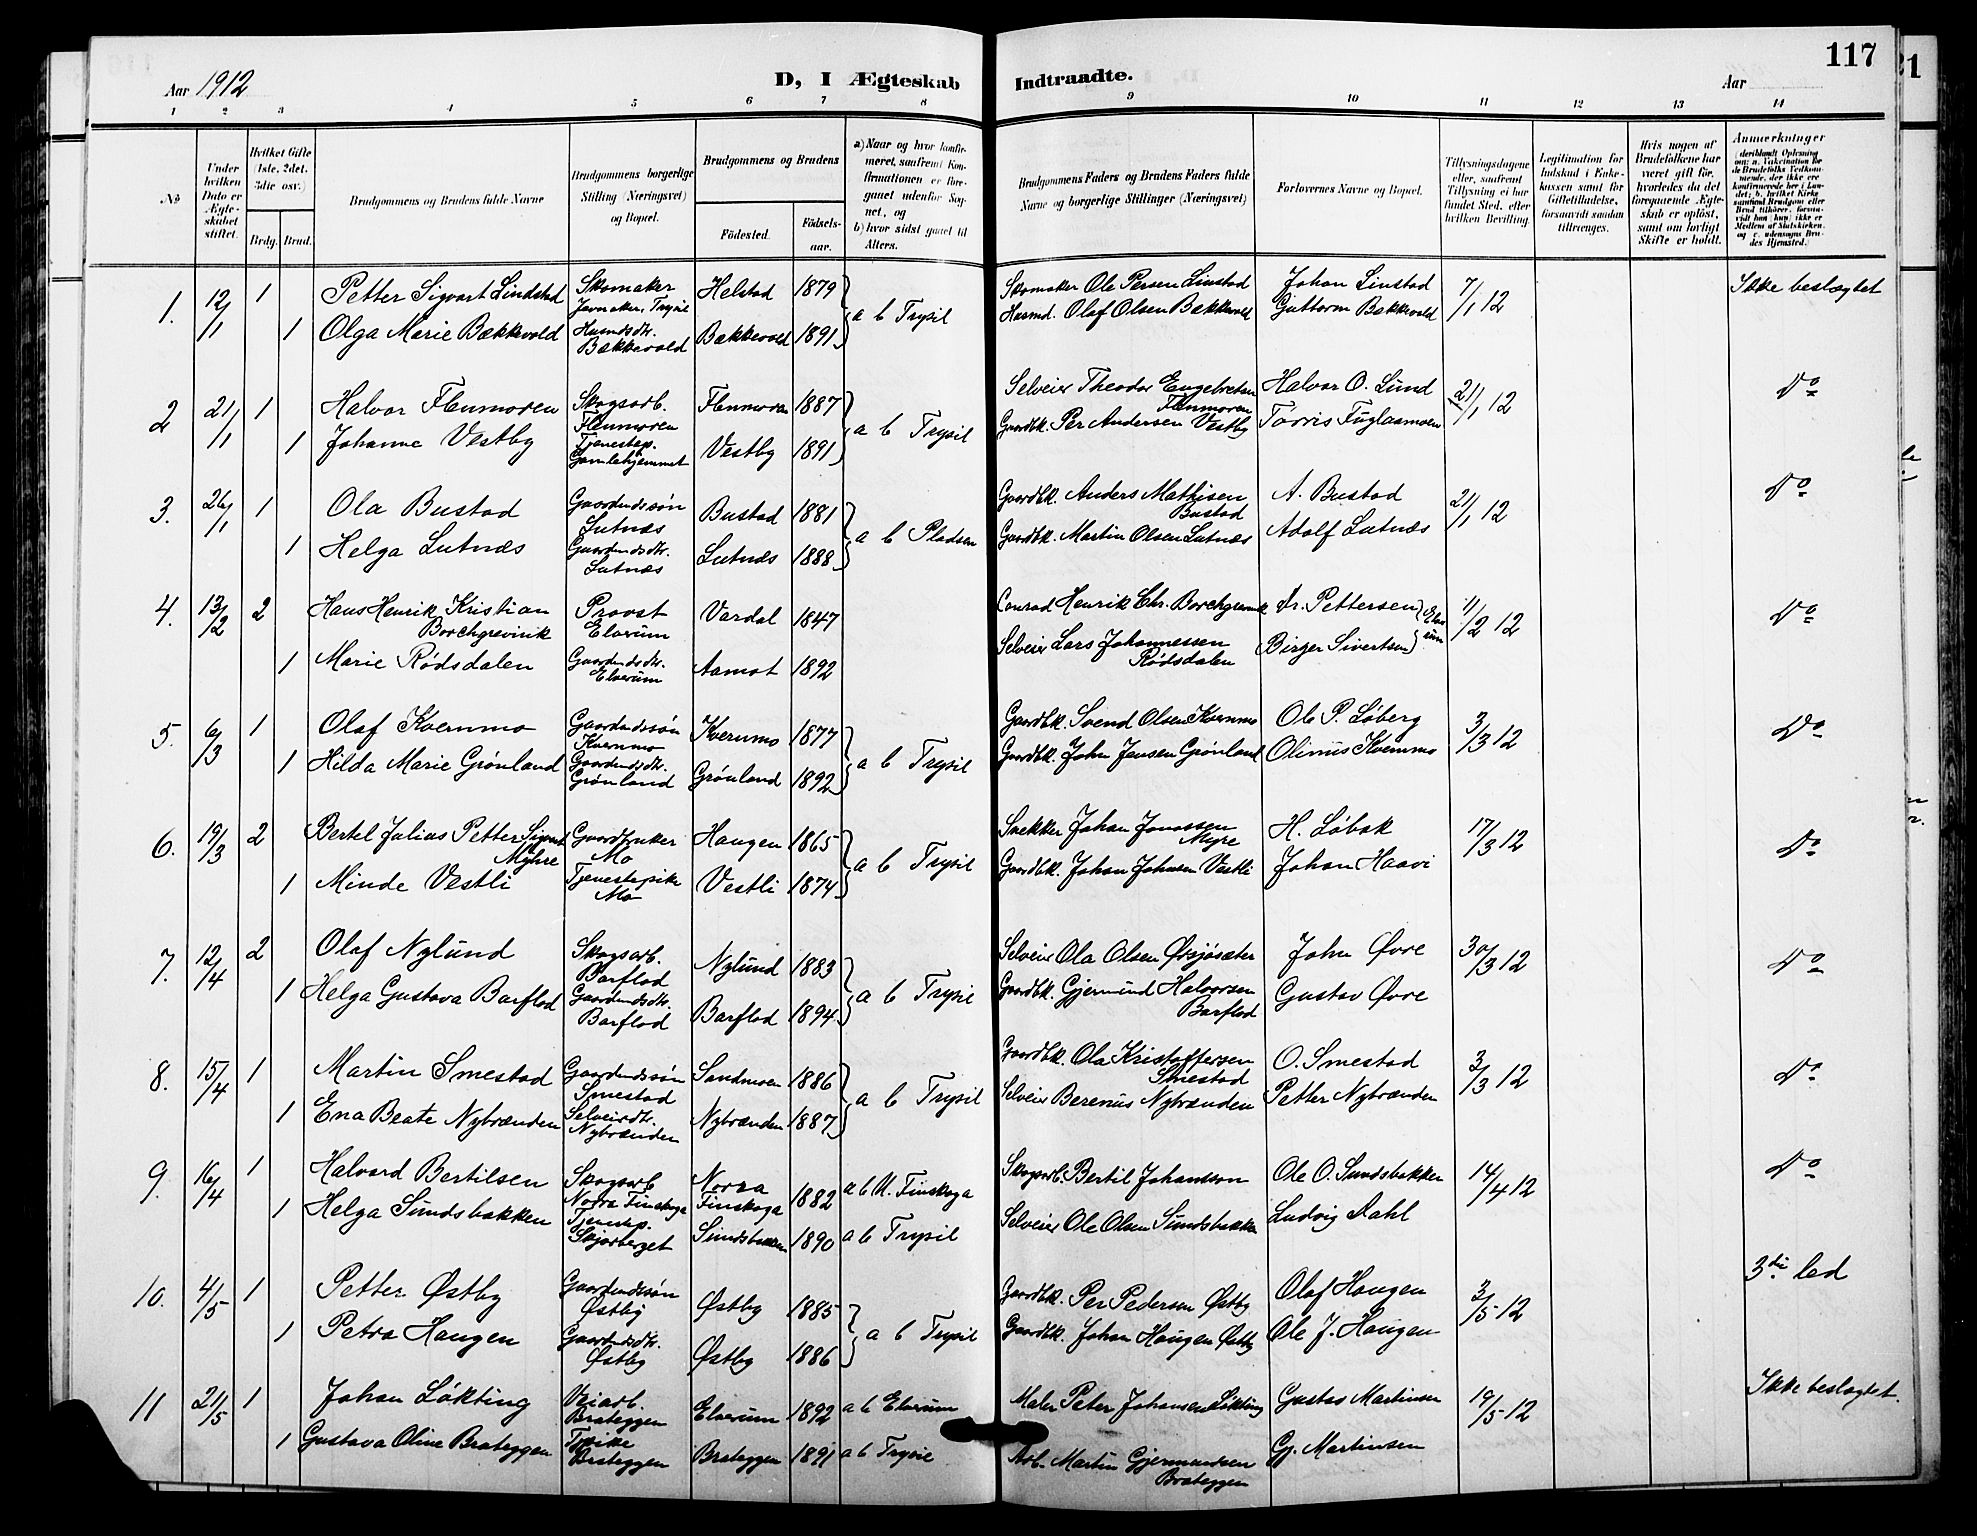 117
Aar 1912
D, I Ægteskab Indtraadte.
Aar
1 2 3 4 5 6 7 8 9 10 11 12 13 14
No
Under hvilken Dato er Ægteskabet stiftet.
Hvilket Gifte (1ste, 2det, 3die osv.)
Brdg. Brud.
Brudgommens og Brudens fulde Navne
Brudgommens borgerlige Stilling (Næringsvei) og Bopæl.
Brudgommens og Brudens
Fødested.
Fødselsaar.
a) Naar og hvor konfirmeret, saafremt Konfirmationen er foregaaet udenfor Sognet, og
b) hvor sidst gaaet til Alters.
Brudgommens Faders og Brudens Faders fulde Navne og borgerlige Stillinger (Næringsvei)
Forlovernes Navne og Bopæl.
Tillysningsdagene eller, saafremt Tillysning ei har fundet Sted, efter hvilken Bevilling.
Legitimation for Indskud i Enkekassen samt for Giftetilladelse, forsaavidt saadan tiltrænges.
Hvis nogen af Brudefolkene har været gift før, hvorledes da det foregaaende Ægteskab er opløst, samt om lovligt Skifte er holdt.
Anmærkninger
1. 12/1 1 Petter Sigvart Lindstad Skomaker Javnaker, Trysil Helstad 1879 a b Trysil Skomaker Ole Persen Linstad Johan Linstad 7/1 12 Ikke beslægtet
1 Olga Marie Bækkevold Husmdsdtr. Bækkevold Bækkevold 1891 Husmd. Olaf Olsen Bækkevold Guttorm Bækkevold
2 21/1 1 Halvor Flenmoren Skogsarb. Flenmoren Flenmoren 1887 a b Trysil Selveier Theodor Engebretsen Flenmoren Halvor O. Lund 21/1 12 Do
1 Johanne Vestby Tjenestep. Gamlehjemmet Vestby 1891 Gaardbk. Per Andersen Vestby Torris Fuglaasmoen
3. 26/1 1 Ola Bustad Gaardmdssøn Lutnæs Bustad 1881 a b Pladsen Gaardbk. Anders Mathisen Bustad A. Bustad 21/1 12 Do
1 Helga Lutnæs Gaardmdsdtr. Lutnæs Lutnæs 1888 Gaardbk. Martin Olsen Lutnæs Adolf Lutnæs
4. 13/2 2 Hans Henrik Kristian Borchgrevink Provst Elverum Vardal 1847 Conrad Henrik Chr. Borchgrevink Dr. Pettersen Elverum 11/2 12 Do
1 Marie Rødsdalen Gaardmdsdtr. Elverum Aamot 1892 Selveier Lars Johannessen Rødsdalen Birger Sivertsen
5. 6/3 1 Olaf Kvernmo Gaardmdssøn Kvernmo Kvernmo 1877 a b Trysil Gaardbk. Svend Olsen Kvernmo Ole P. Løberg 3/3 12 Do
1 Hilda Marie Grønland Gaardmdsdtr. Grønland Grønland 1892 Gaardbk. John Jensen Grønland Olinus Kvernmo
6. 19/3 2 Bertel Julius Petter Sigurd Myhre Gaardbruker Mo Haugen 1865 a b Trysil Snekker Johan Jonassen Myre H. Løbak 17/3 12 Do
1 Minde Vestli Tjenestepike Mo Vestli 1874 Gaardbk. Johan Johnsen Vestli Johan Haavi
7. 12/4 2 Olaf Nylund Skogsarb. Barflod Nylund 1883 a b Trysil Selveier Ola Olsen Ørsjøsæter John Øvre 30/3 12 Do
1 Helga Gustava Barflod Gaardmdsdtr. Barflod Barflod 1894 Gaardbk. Gjermund Halvorsen Barflod Gustav Øvre
8. 15/4 1 Martin Smestad Gaardmdssøn Smestad Sandmoen 1886 a b Trysil Gaardbk. Ola Kristoffersen Smestad O. Smestad 3/3 12 Do
1 Ena Beate Nybrænden Selveierdtr. Nybrænden Nybrænden 1887 Selveier Berenus Nybrænden Petter Nybrænden
9. 16/4 1 Halvard Bertilsen Skogsarb. Norra Finskoga Norra Finskoga 1882 a b N. Finskoga Skogsarb. Bertil Johansson Ole O. Sundsbakken 14/4 12 Do
1 Helga Sundsbakken Tjenestep. Skjærberget Sundsbakken 1890 a b Trysil Selveier Ole Olsen Sundsbakken Ludvig Dahl
10. 4/5 1 Petter Østby Gaardmdssøn Østby Østby 1885 a b Trysil Gaardbk. Per Pedersen Østby Olaf Haugen 3/5 12 3die led
1 Petra Haugen Gaardmdsdtr. Østby Østby 1886 Gaardbk. Johan Haugen Østby Ole J. Haugen
11 21/5 1 Johan Løkting Veiarb. Brateggen Elverum 1892 a b Elverum Maler Peter Johansen Løkting Gustav Martinsen 19/5 12 Ikke beslægtet.
1 Gustava Oline Brateggen Tpike Brateggen Brateggen 1891 a b Trysil Arb. Martin Gjermundsen Brateggen Gj. Martinsen